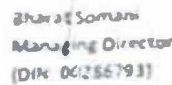 Bharat Somani
Managing Director
(DIN: 00286793)